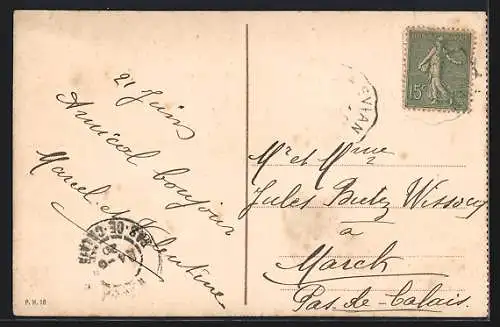 21 Juin
Amical bonjour
Marcel et Valentine
P. H. 16
15
EVIAN
Mr et Mme
Jules Butez Wissocq
à
Marck
Pas-de-Calais.
PAS-DE-CALAIS